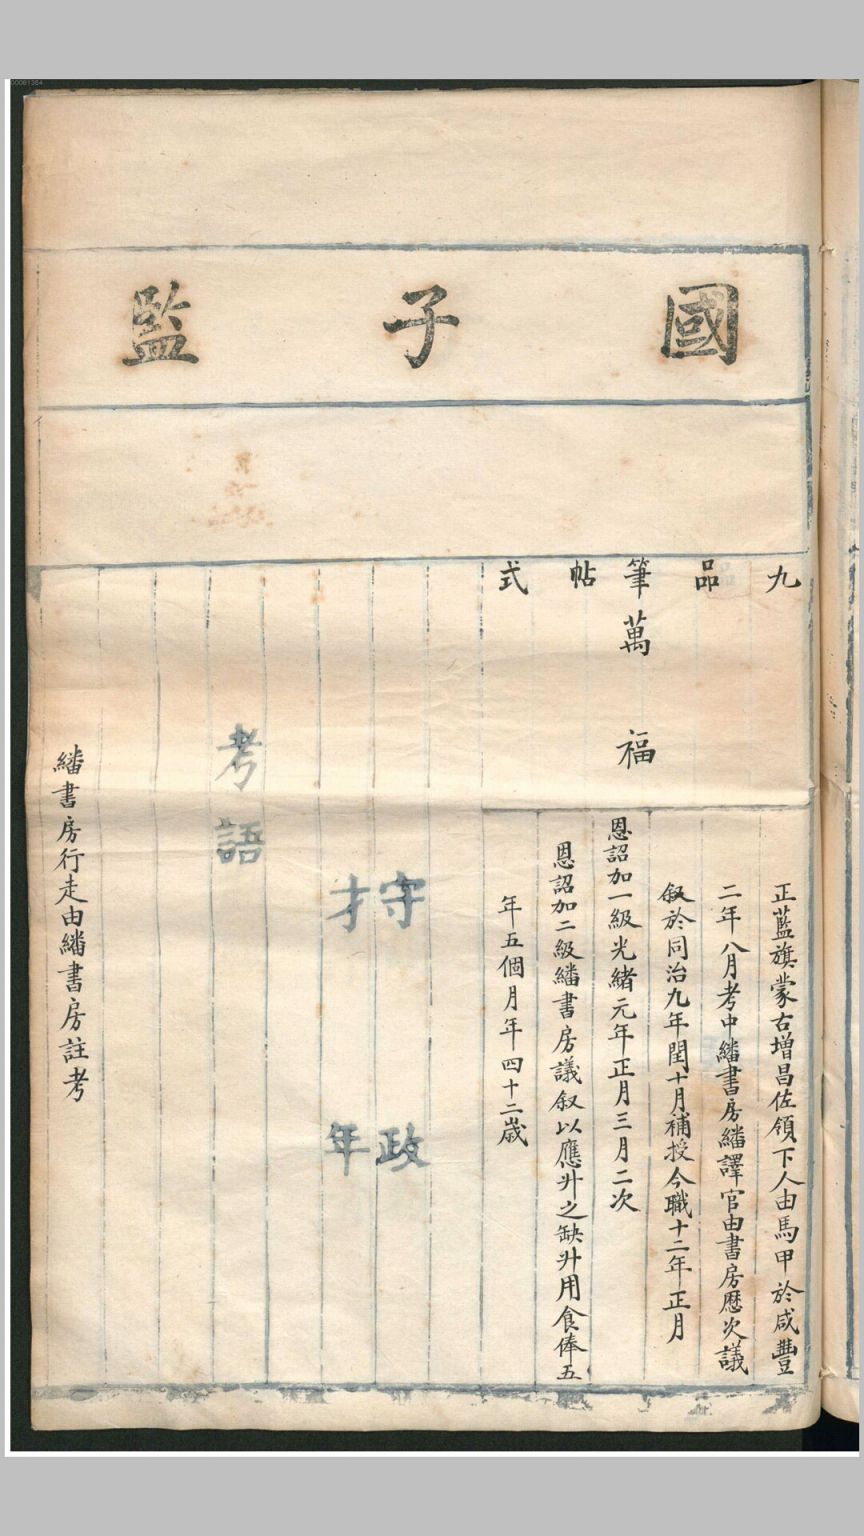 國子監
九品筆帖式
萬福
正藍旗蒙古增昌佐領下人由馬甲於咸豐
二年八月考中繙書房繙譯官由書房歷次議
叙於同治九年閏十月補授今職十二年正月
恩詔加一級光緒元年正月三月二次
恩詔加二級繙書房議叙以應升之缺升用食俸五
年五個月年四十二歲
守 政
才 年
考語
繙書房行走由繙書房註考